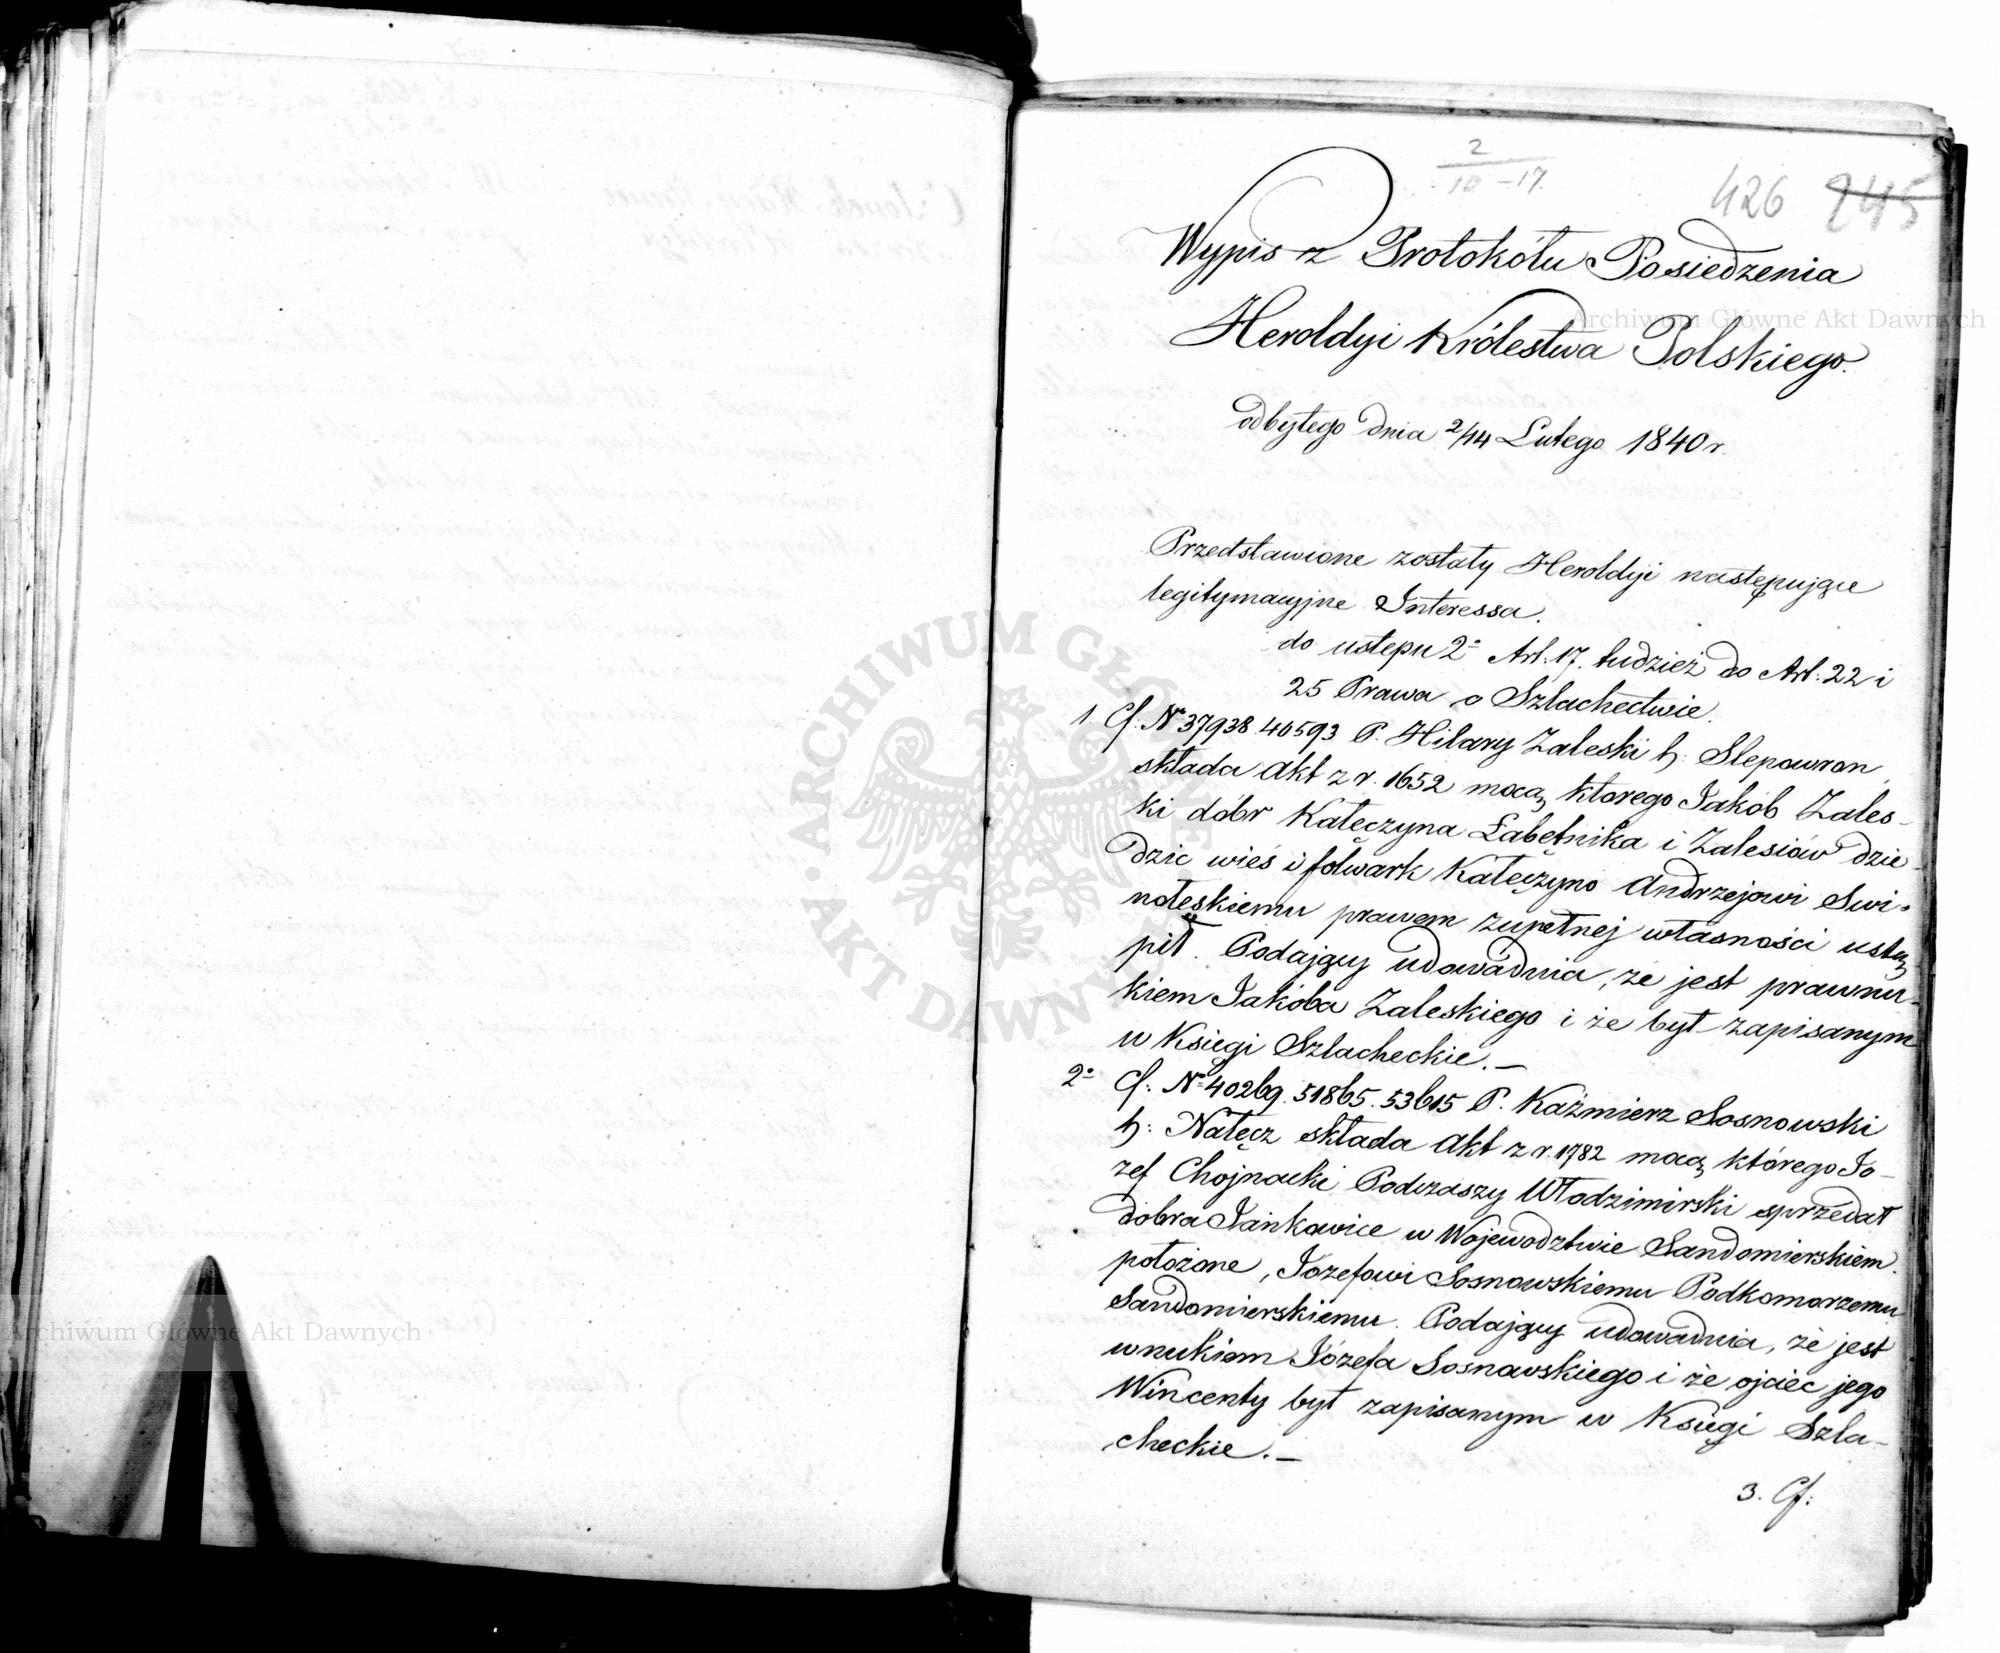 2
10 - 17.
426 245
Wypis z Protokółu Posiedzenia
Heroldyi Królestwa Polskiego.
odbytego dnia 2/14 Lutego 1840 r.
Przedstawione zostały Heroldyi następujące
legitymacyjne Interessa.
do ustępu 2º Art. 17. tudzież do Art. 22 i
25 Prawa o Szlachectwie.
1. Cf. Nº 37938 40593 P. Hilary Zaleski h: Slepowron
składa Akt z r. 1652 mocą ktorego Jakób Zales-
ki dóbr Katęczyna Łabętnika i Zalesiów dzie-
dzic wieś i folwark Katęczyno Andrzejowi Swi-
noleskiemu prawem zupełnej własności ustą-
pił. Podający udowadnia, że jest prawnu-
kiem Jakóba Zaleskiego i że był zapisanym
w Księgi Szlacheckie. –
2º Cf: Nº 40269. 51865. 53615 P. Kaźmierz Sosnowski
h: Nałęcz składa Akt z r. 1782 mocą którego Jó-
zef Chojnacki Podczaszy Włodzimirski sprzedał
dobra Jankowice w Województwie Sandomierskiem
położone, Józefowi Sosnowskiemu Podkomorzemu
Sandomierskiemu. Podający udowadnia, że jest
wnukiem Józefa Sosnowskiego i że ojciec jego
Wincenty był zapisanym w Księgi Szla-
checkie. –
3. Cf:
Archiwum Główne Akt Dawnych
Archiwum Główne Akt Dawnych
ARCHIWUM GŁÓWNE · AKT DAWNYCH ·